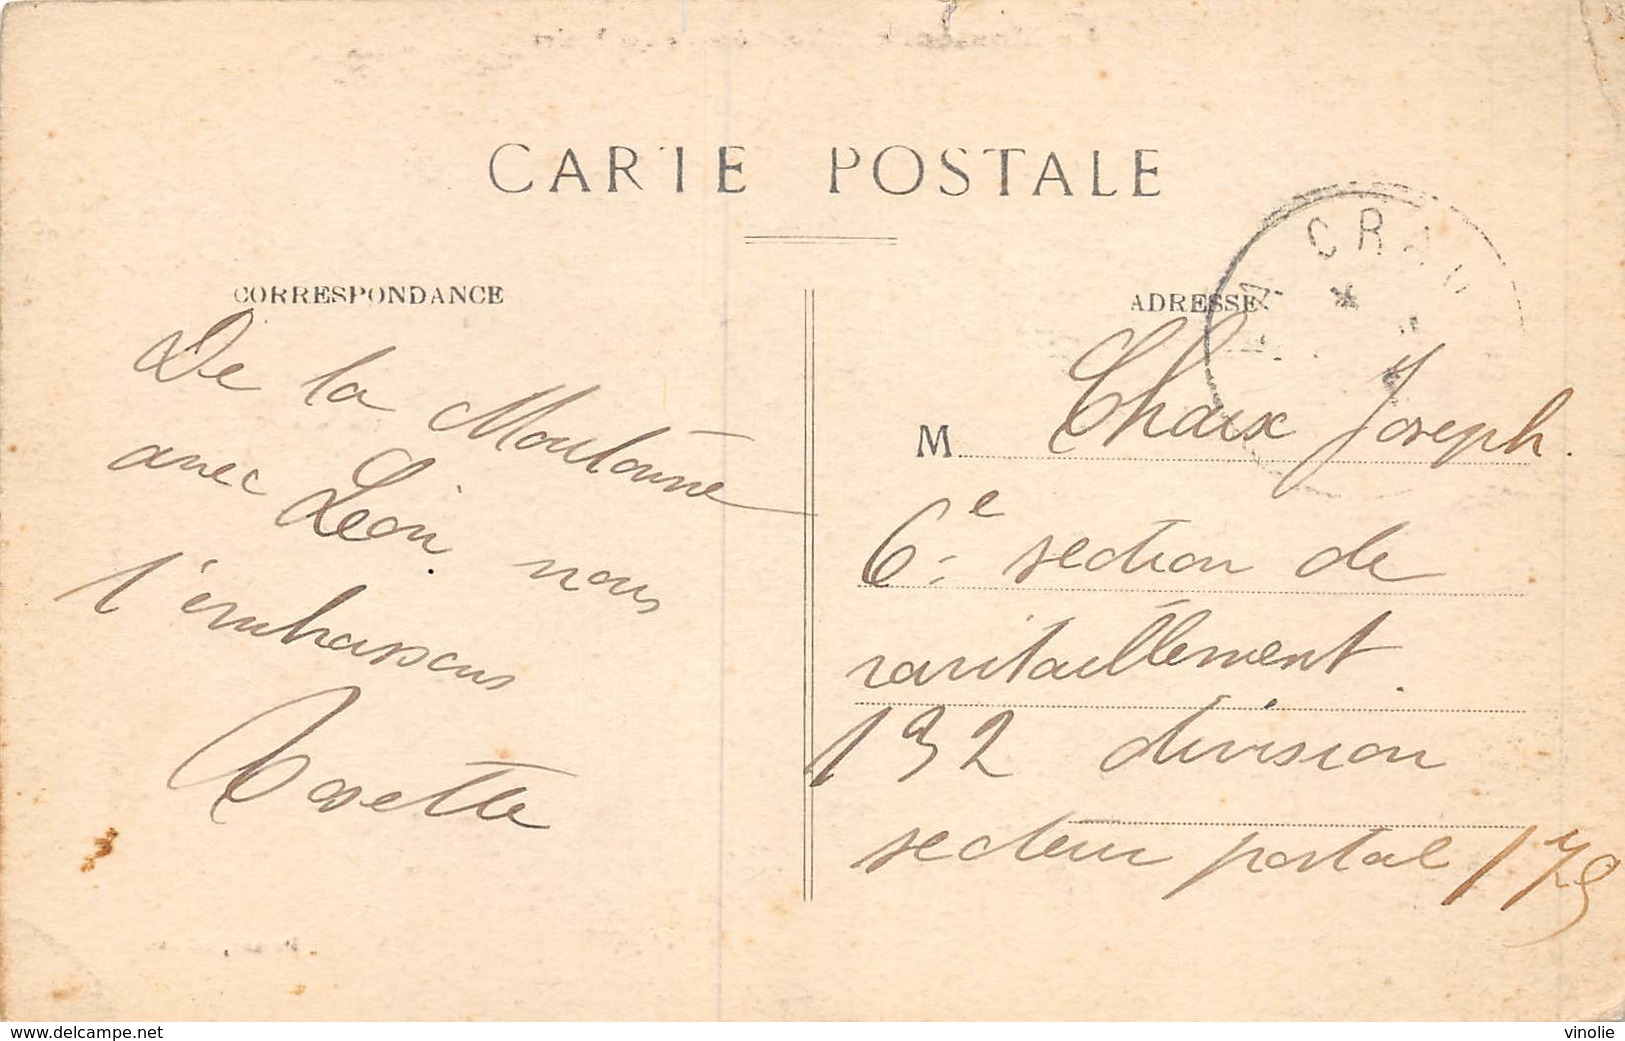 CARTE POSTALE
CORRESPONDANCE
De la Moutonne
avec Léon nous
t'embrassons
Rosette
ADRESSE
LA CRAU
M Chaix Joseph.
6e section de
ravitaillement.
132 division
secteur postal 179
www.delcampe.net
vinolie